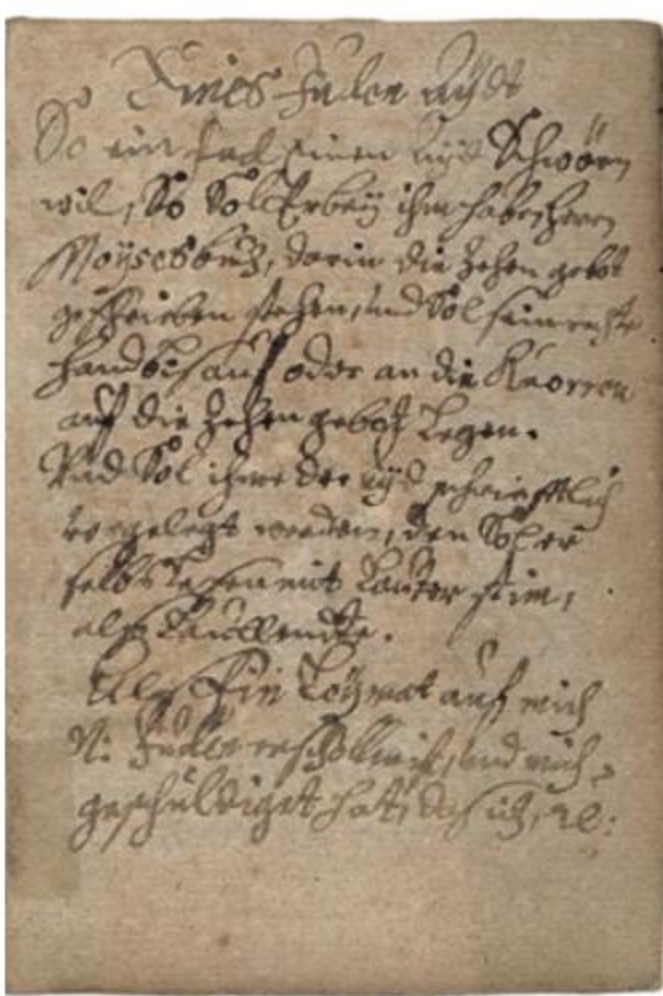 Eines Juden Aydt
So ein Jud einen Ayd Schwörn
wil, So Sol Er beÿ ihm haben Herrn
Moÿses buch, darin die Zehen gebot
geschrieben stehen, und Sol sein rechte
Handt auf oder an die Knorren
auf die Zehen gebot Legen.
Und Sol ihme der Ayd schriefftlich
vorgelegt werden, den Sol er
selbst Lesen mit Lauter stim,
also Lauttendte.
Als Ein auf mich
N. Juden und mich
geschuldiget hat, das ich, ec: